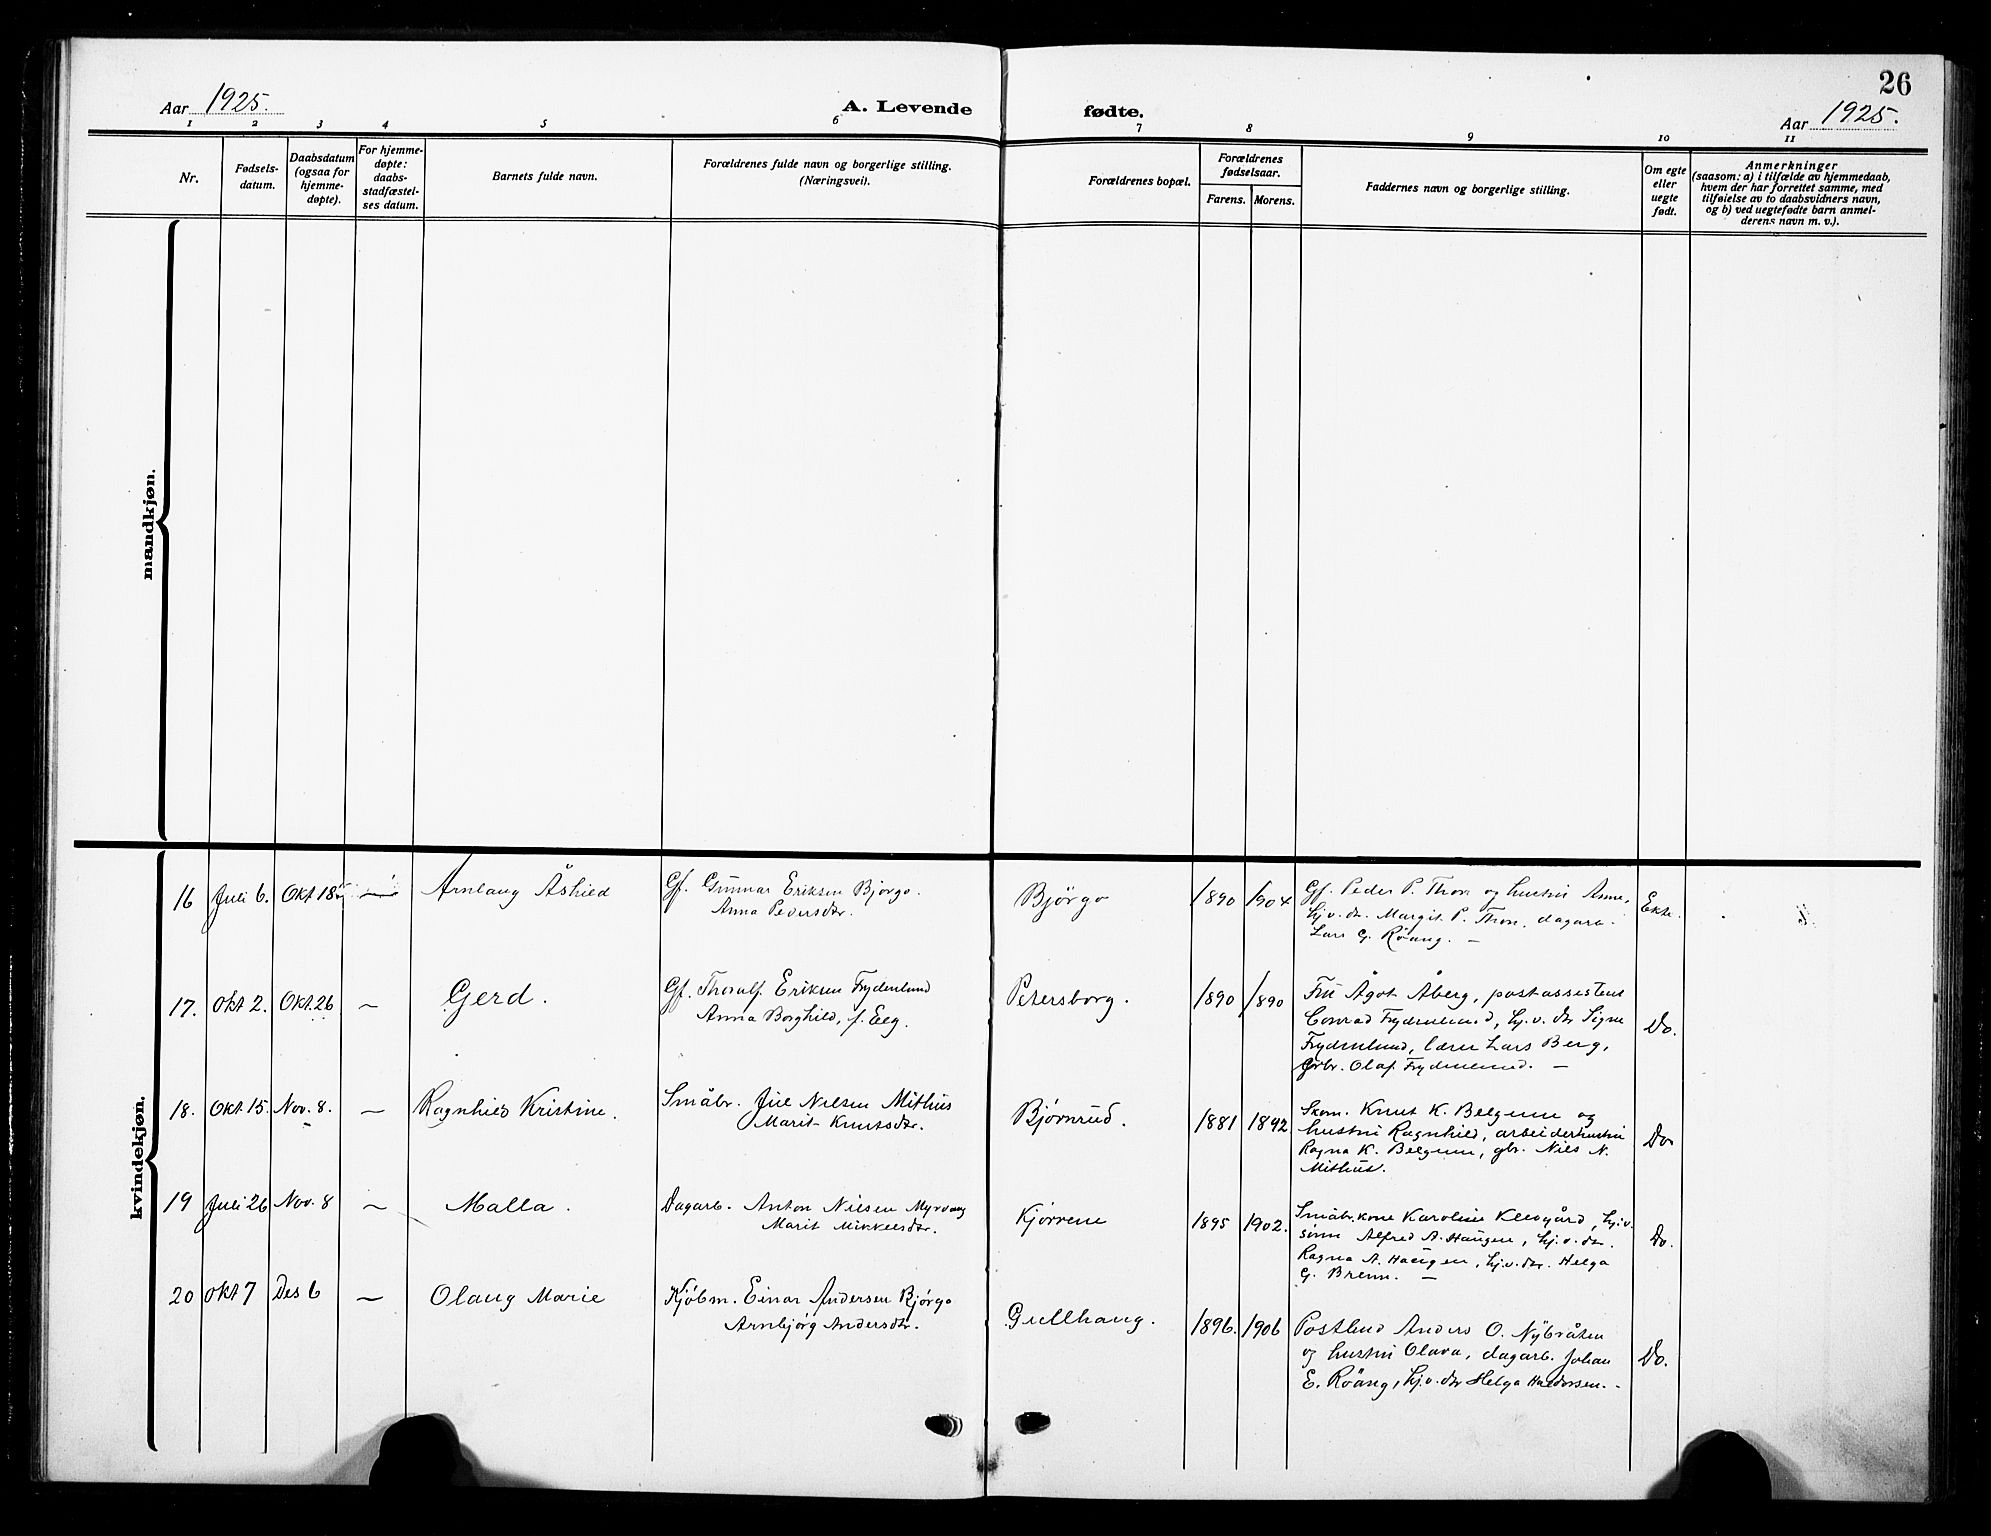 26
Aar 1925.
A. Levende fødte.
Aar 1925.
1 2 3 4 5 6 7 8 9 10 11
Nr.
Fødsels-
datum.
Daabsdatum
(ogsaa for
hjemme-
døpte).
For hjemme-
døpte:
daabs-
stadfæstel-
ses datum.
Barnets fulde navn.
Forældrenes fulde navn og borgerlige stilling.
(Næringsvei).
Forældrenes bopæl.
Forældrenes
fødselsaar.
Farens. Morens.
Faddernes navn og borgerlige stilling.
Om egte
eller
uegte
født.
Anmerkninger
(saasom: a) i tilfælde av hjemmedaab,
hvem der har forrettet samme, med
tilføielse av to daabsvidners navn,
og b) ved uegtefødte barn anmel-
derens navn m. v.).
mandkjøn.
kvindekjøn.
16 Juli 6. Okt 18 — Arnlaug Åshild
Gf. Gunnar Eriksen Bjørgo.
Anna Pedersdtr.
Bjørgo 1890 1904
Gf. Peder P. Thon og hustru Anne,
hj.v. dtr. Margit P. Thon, dagarb.
Lars G. Röang. —
Ekte.
17. Okt 2. Okt. 26 — Gerd.
Gf. Thoralf Eriksen Frydenlund
Anna Borghild, f. Eeg.
Petersborg. 1890 1890
Fru Ågot Åberg, postassistent
Conrad Frydenlund, hj.v. dtr Signe
Frydenlund, lærer Lars Berg,
Grbr. Olaf Frydenlund. —
Do.
18. Okt 15. Nov. 8. — Ragnhild Kristine.
Småbr. Jul Nilsen Mithus
Marit Knutsdtr.
Bjørnrud. 1881 1892
Skom. Knut K. Belgum og
hustru Ragnhild, arbeiderhustru
Ragna K. Belgum, gbr. Nils N.
Mithus.
Do
19 Juli 26 Nov. 8 — Malla.
Dagarb. Anton Nilsen Myrvang
Marit Mikkelsdtr.
Kjørrene 1895 1902.
Småbr.kone Karoline Klevgård, hj.v.
sønn Alfred A. Haugen, hj.v. dtr.
Ragna A. Haugen, hj.v. dtr. Helga
G. Brenn. —
Do.
20 Okt 7 Des 6 — Olaug Marie
Kjøbm. Einar Andersen Bjørgo
Arnbjørg Andersdtr.
Gullhaug. 1896. 1906
Postbud Anders O. Nybråten
og hustru Olava, dagarb. Johan
E. Röang, hj.v. dtr Helga Haldorsen. -
Do.